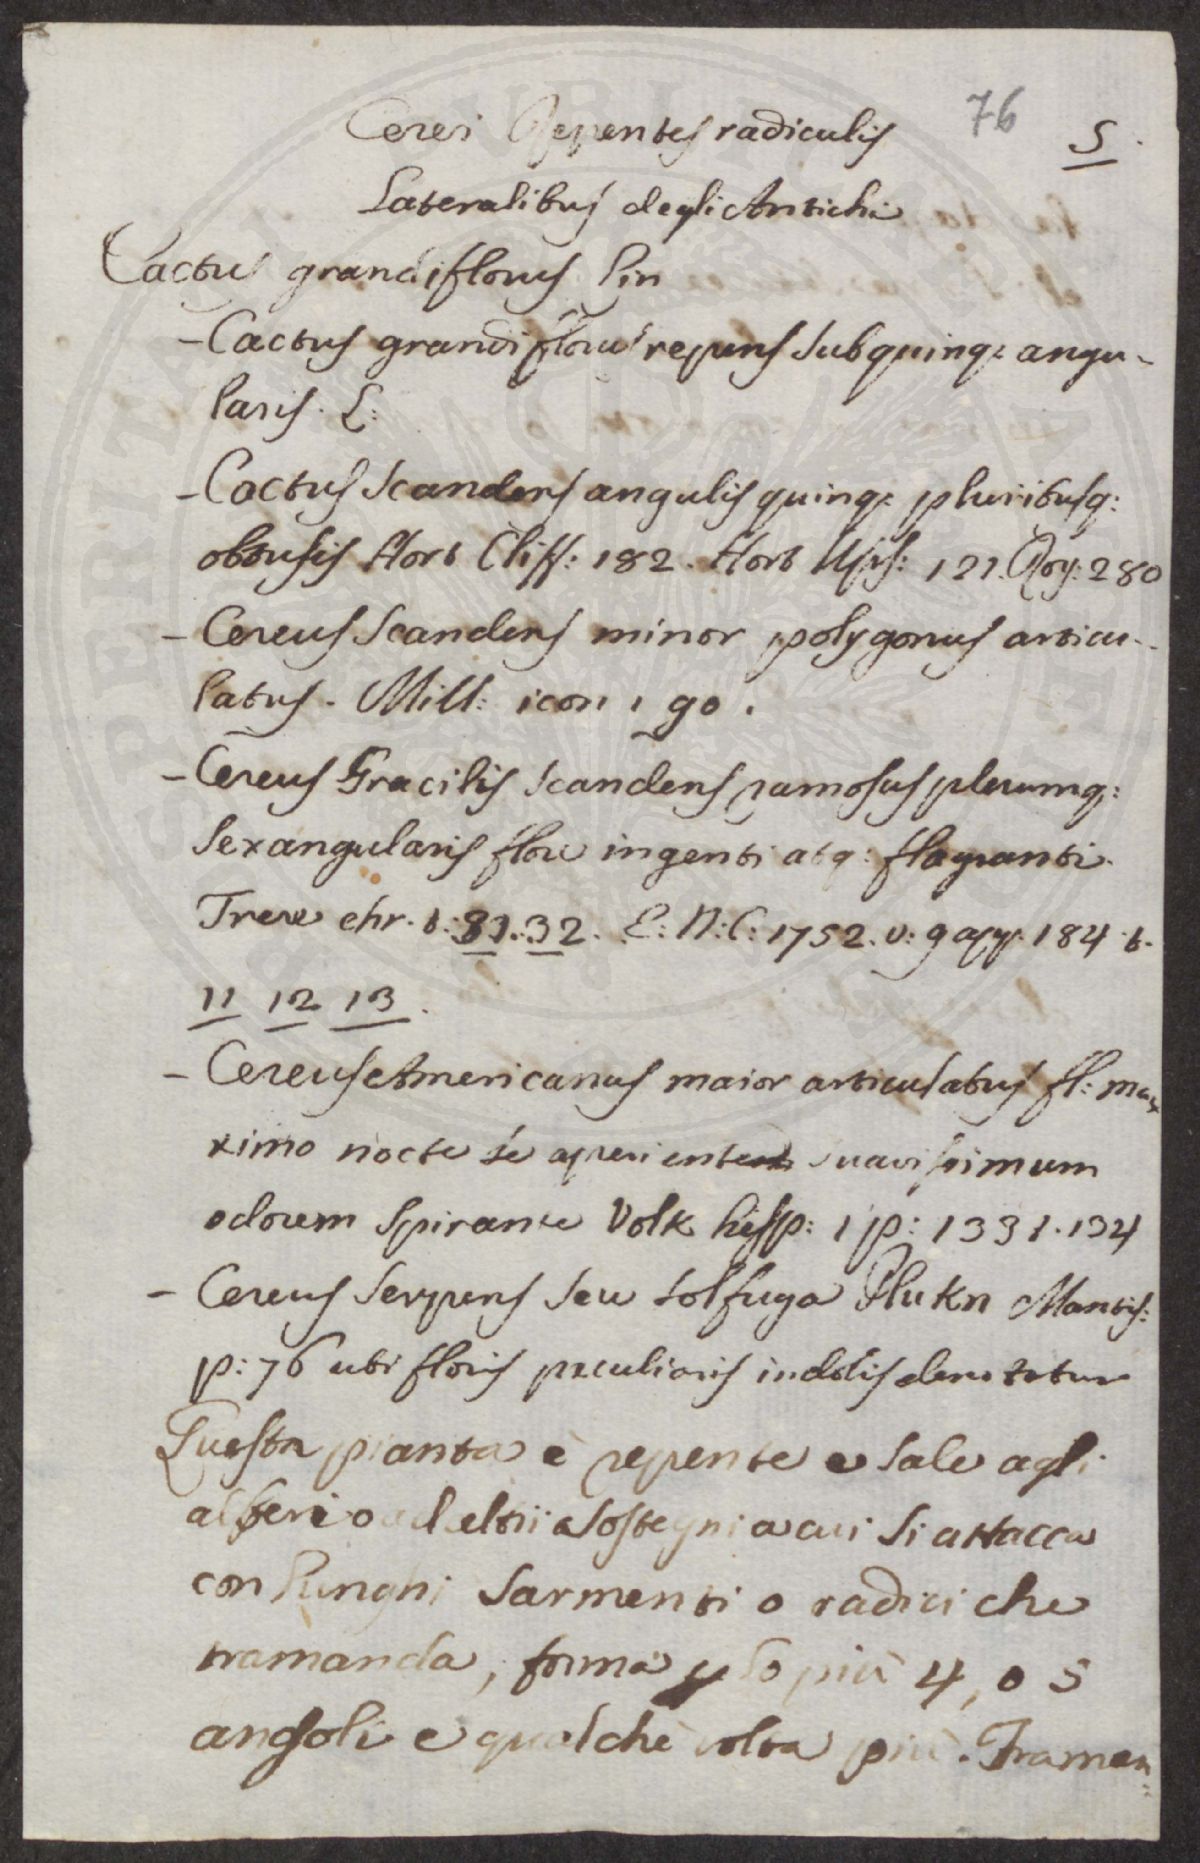 76
5
Cerei Repentes radiculis
Lateralibus degli Antichi
Cactus grandiflorus Lin
- Cactus grandiflorus repens subquinq: angu-
laris. L:
- Cactus scandens angulis quinq: pluribusq:
obtusis Hort Cliff: 182. Hort Ups: 121. Roy: 280
- Cereus scandens minor polygonus articu-
latus. Mill: icon 1 90.
- Cereus Gracilis scandens ramosus plerumq:
sexangularis flore ingenti atq: flagranti.
Trew ehr. t: 31. 32. E: N: C: 1752. v: 9 app: 184 t.
11 12 13.
- Cereus Americanus maior articulatus fl: ma
ximo nocte se aperiente suavissimum
odorem spirante Volk hesp: 1 p: 133 1. 134
- Cereus serpens seu solfuga Plukn Mantis:
p: 76 ubi floris peculiaris indolis denotatur
Questa pianta è repente e sale agli
alberi o ad altri sostegni a cui si attacca
con lunghi sarmenti o radici che
tramanda, forma p lo più 4, o 5
angoli e qualche volta più. Tramen=